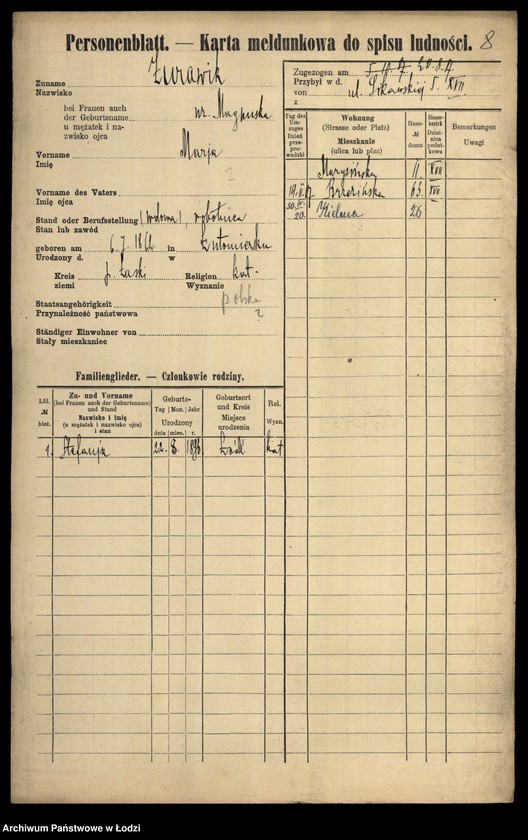 Personenblatt. — Karta meldunkowa do spisu ludności. 8
Zuname Żurawik
Nazwisko
bei Frauen auch
der Geburtsname
u mężatek i na-
zwisko ojca
Vorname Marja
Imię
?
Vorname des Vaters
Imię ojca
Stand oder Berufsstellung (wdowa), robotnica
Stan lub zawód
geboren am 6. 7. 1862 in Lutomiersku
Urodzony d. w
Kreis p. Łaski Religion kat.
ziemi Wyznanie
Staatsangehörigkeit polska
Przynależność państwowa ?
Ständiger Einwohner von
Stały mieszkaniec
Zugezogen am 20.8.17
Przybył w d.
von ul. XVII
z
Tag des Umzuges
Dzień przeprowadzki
Wohnung
(Strasse oder Platz)
Mieszkanie
(ulica lub plac)
Haus-
№
domu
Steuer-
bezirk
Dzielnica
podatkowa
Bemerkungen
Uwagi
Marysińska 11 XVII
17 Brzezińska 63 XVII
20 Zielona 26
Familienglieder. — Członkowie rodziny.
Lfd.
№
bież.
Zu- und Vorname
(bei Frauen auch der Geburtsname)
und Stand
Nazwisko i imię
(u mężatek i nazwisko ojca)
i stan
Geburts-
Tag Mon. Jahr
Urodzony
dnia mies. r.
Geburtsort
und Kreis
Miejsce
urodzenia
Rel.
Wyzn.
1. Stefanja 22. 8. Łódź kat
Archiwum Państwowe w Łodzi